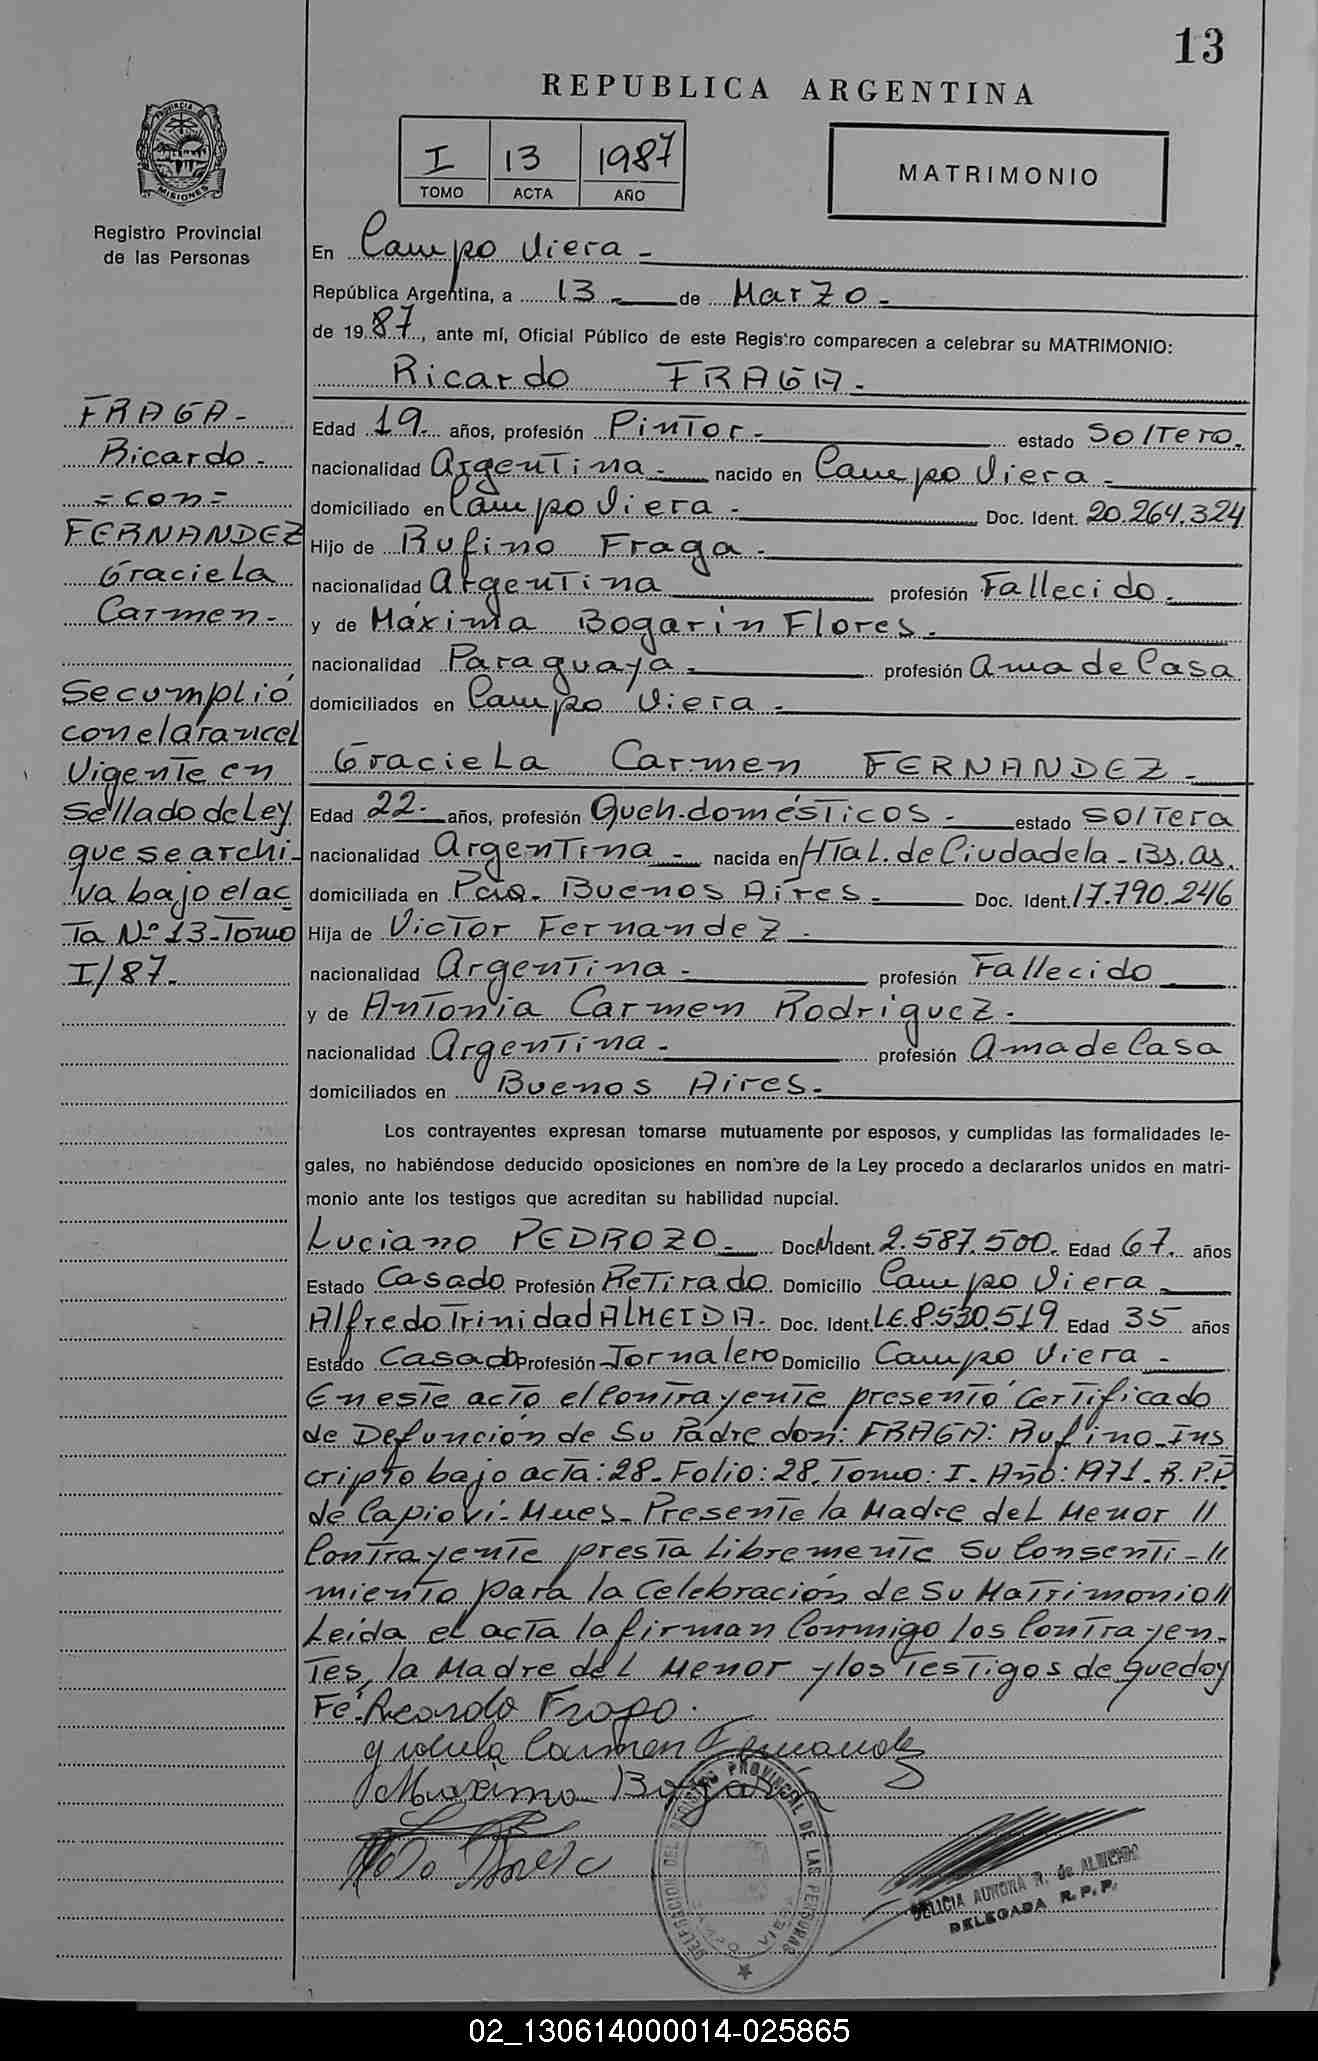 13
REPUBLICA ARGENTINA
PROVINCIA DE
MISIONES
Registro Provincial
de las Personas
I 13 1987
TOMO ACTA AÑO
MATRIMONIO
En Campo Viera -
República Argentina, a 13 - de Marzo -
de 19 87, ante mí, Oficial Público de este Registro comparecen a celebrar su MATRIMONIO:
Ricardo FRAGA -
Edad 19 - años, profesión Pintor - estado Soltero.
nacionalidad Argentina - nacido en Campo Viera -
domiciliado en Campo Viera - Doc. Ident. 20.264.324
Hijo de Rufino Fraga -
nacionalidad Argentina profesión Fallecido -
y de Máxima Bogarin Flores -
nacionalidad Paraguaya - profesión Ama de Casa
domiciliados en Campo Viera -
Graciela Carmen FERNANDEZ -
Edad 22 - años, profesión Queh. domésticos - estado Soltera
nacionalidad Argentina - nacida en Htal. de Ciudadela - Bs. As.
domiciliada en Pcia. Buenos Aires - Doc. Ident. 17.790.246
Hija de Victor Fernandez -
nacionalidad Argentina - profesión Fallecido
y de Antonia Carmen Rodriguez -
nacionalidad Argentina - profesión Ama de Casa
domiciliados en Buenos Aires -
Los contrayentes expresan tomarse mutuamente por esposos, y cumplidas las formalidades le-
gales, no habiéndose deducido oposiciones en nombre de la Ley procedo a declararlos unidos en matri-
monio ante los testigos que acreditan su habilidad nupcial.
Luciano PEDROZO - Doc. Ident. 2.587.500. Edad 67 años
Estado Casado Profesión Retirado Domicilio Campo Viera -
Alfredo Trinidad ALMEIDA - Doc. Ident. L.E. 8.530.519 Edad 35 años
Estado Casado Profesión Jornalero Domicilio Campo Viera -
En este acto el Contrayente presentó Certificado
de Defunción de Su Padre don: FRAGA: Rufino - Ins
cripto bajo acta: 28 - Folio: 28. Tomo: I - Año: 1971 - R.P.P
de Capioví - Mnes - Presente la Madre del Menor //
Contrayente presta Libremente Su Consenti - //
miento para la Celebración de Su Matrimonio //
Leída el acta la firman Conmigo los Contrayen-
tes, la Madre del Menor y los Testigos de que doy
Fé.- Ricardo Fraga.
Graciela Carmen Fernandez
Maxima Bogarin
FRAGA -
Ricardo -
= con =
FERNANDEZ
Graciela
Carmen -
Se cumplió
con el arancel
Vigente en
Sellado de Ley
que se archi-
va bajo el ac
Ta Nº 13 - Tomo
I/87 -
DELEGACION DEL REGISTRO PROVINCIAL DE LAS PERSONAS
CAMPO VIERA
DELICIA AURORA R. de ALMEIDA
DELEGADA R.P.P.
02_130614000014-025865